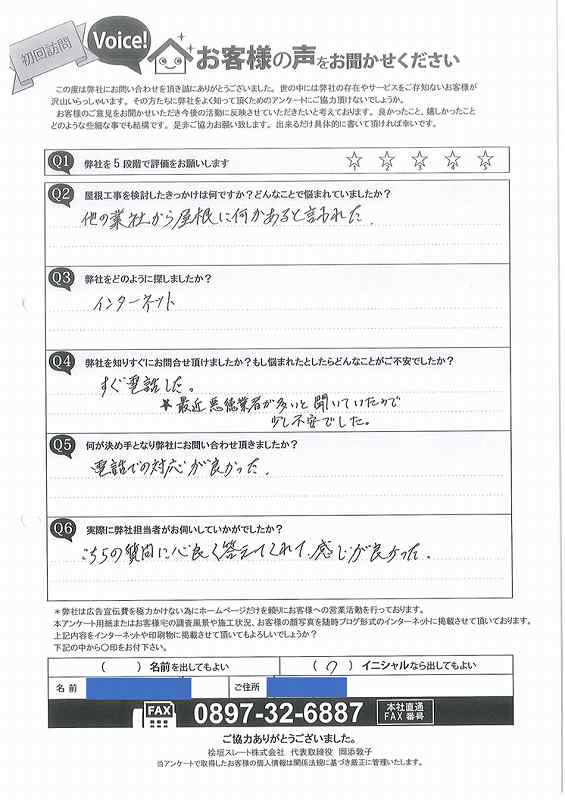 初回訪問
Voice!
お客様の声をお聞かせください
この度は弊社にお問い合わせを頂き誠にありがとうございました。世の中には弊社の存在やサービスをご存知ないお客様が
沢山いらっしゃいます。その方たちに弊社をよく知って頂くためのアンケートにご協力頂けないでしょうか。
お客様のご意見をお聞かせいただき今後の活動に反映させていただきたいと考えております。良かったこと、嬉しかったこと
どのような些細な事でも結構です。是非ご協力お願い致します。出来るだけ具体的に書いて頂ければ幸いです。
Q1 弊社を5段階で評価をお願いします ☆ ☆ ☆ ☆ ☆
1 2 3 4 5
Q2 屋根工事を検討したきっかけは何ですか?どんなことで悩まれていましたか?
他の業社から屋根に何かあると言われた.
Q3 弊社をどのように探しましたか?
インターネット
Q4 弊社を知りすぐにお問合せ頂けましたか?もし悩まれたとしたらどんなことがご不安でしたか?
すぐ電話した。
*最近悪徳業者が多いと聞いていたので
少し不安でした。
Q5 何が決め手となり弊社にお問い合わせ頂きましたか?
電話での対応が良かった.
Q6 実際に弊社担当者がお伺いしていかがでしたか?
こちらの質問に心良く答えてくれて、感じが良かった.
*弊社は広告宣伝費を極力かけない為にホームページだけを頼りにお客様への営業活動を行っております。
本アンケート用紙またはお客様宅の調査風景や施工状況、お客様の顔写真を随時ブログ形式のインターネットに掲載させて頂いております。
上記内容をインターネットや印刷物に掲載させて頂いてもよろしいでしょうか?
下記の中から〇印をお付下さい。
( ) 名前を出してもよい (〇) イニシャルなら出してもよい
名前 ご住所
FAX 0897-32-6887 本社直通
FAX番号
ご協力ありがとうございました。
桧垣スレート株式会社 代表取締役 岡添敦子
当アンケートで取得したお客様の個人情報は関係法規に基づき厳正に管理いたします。